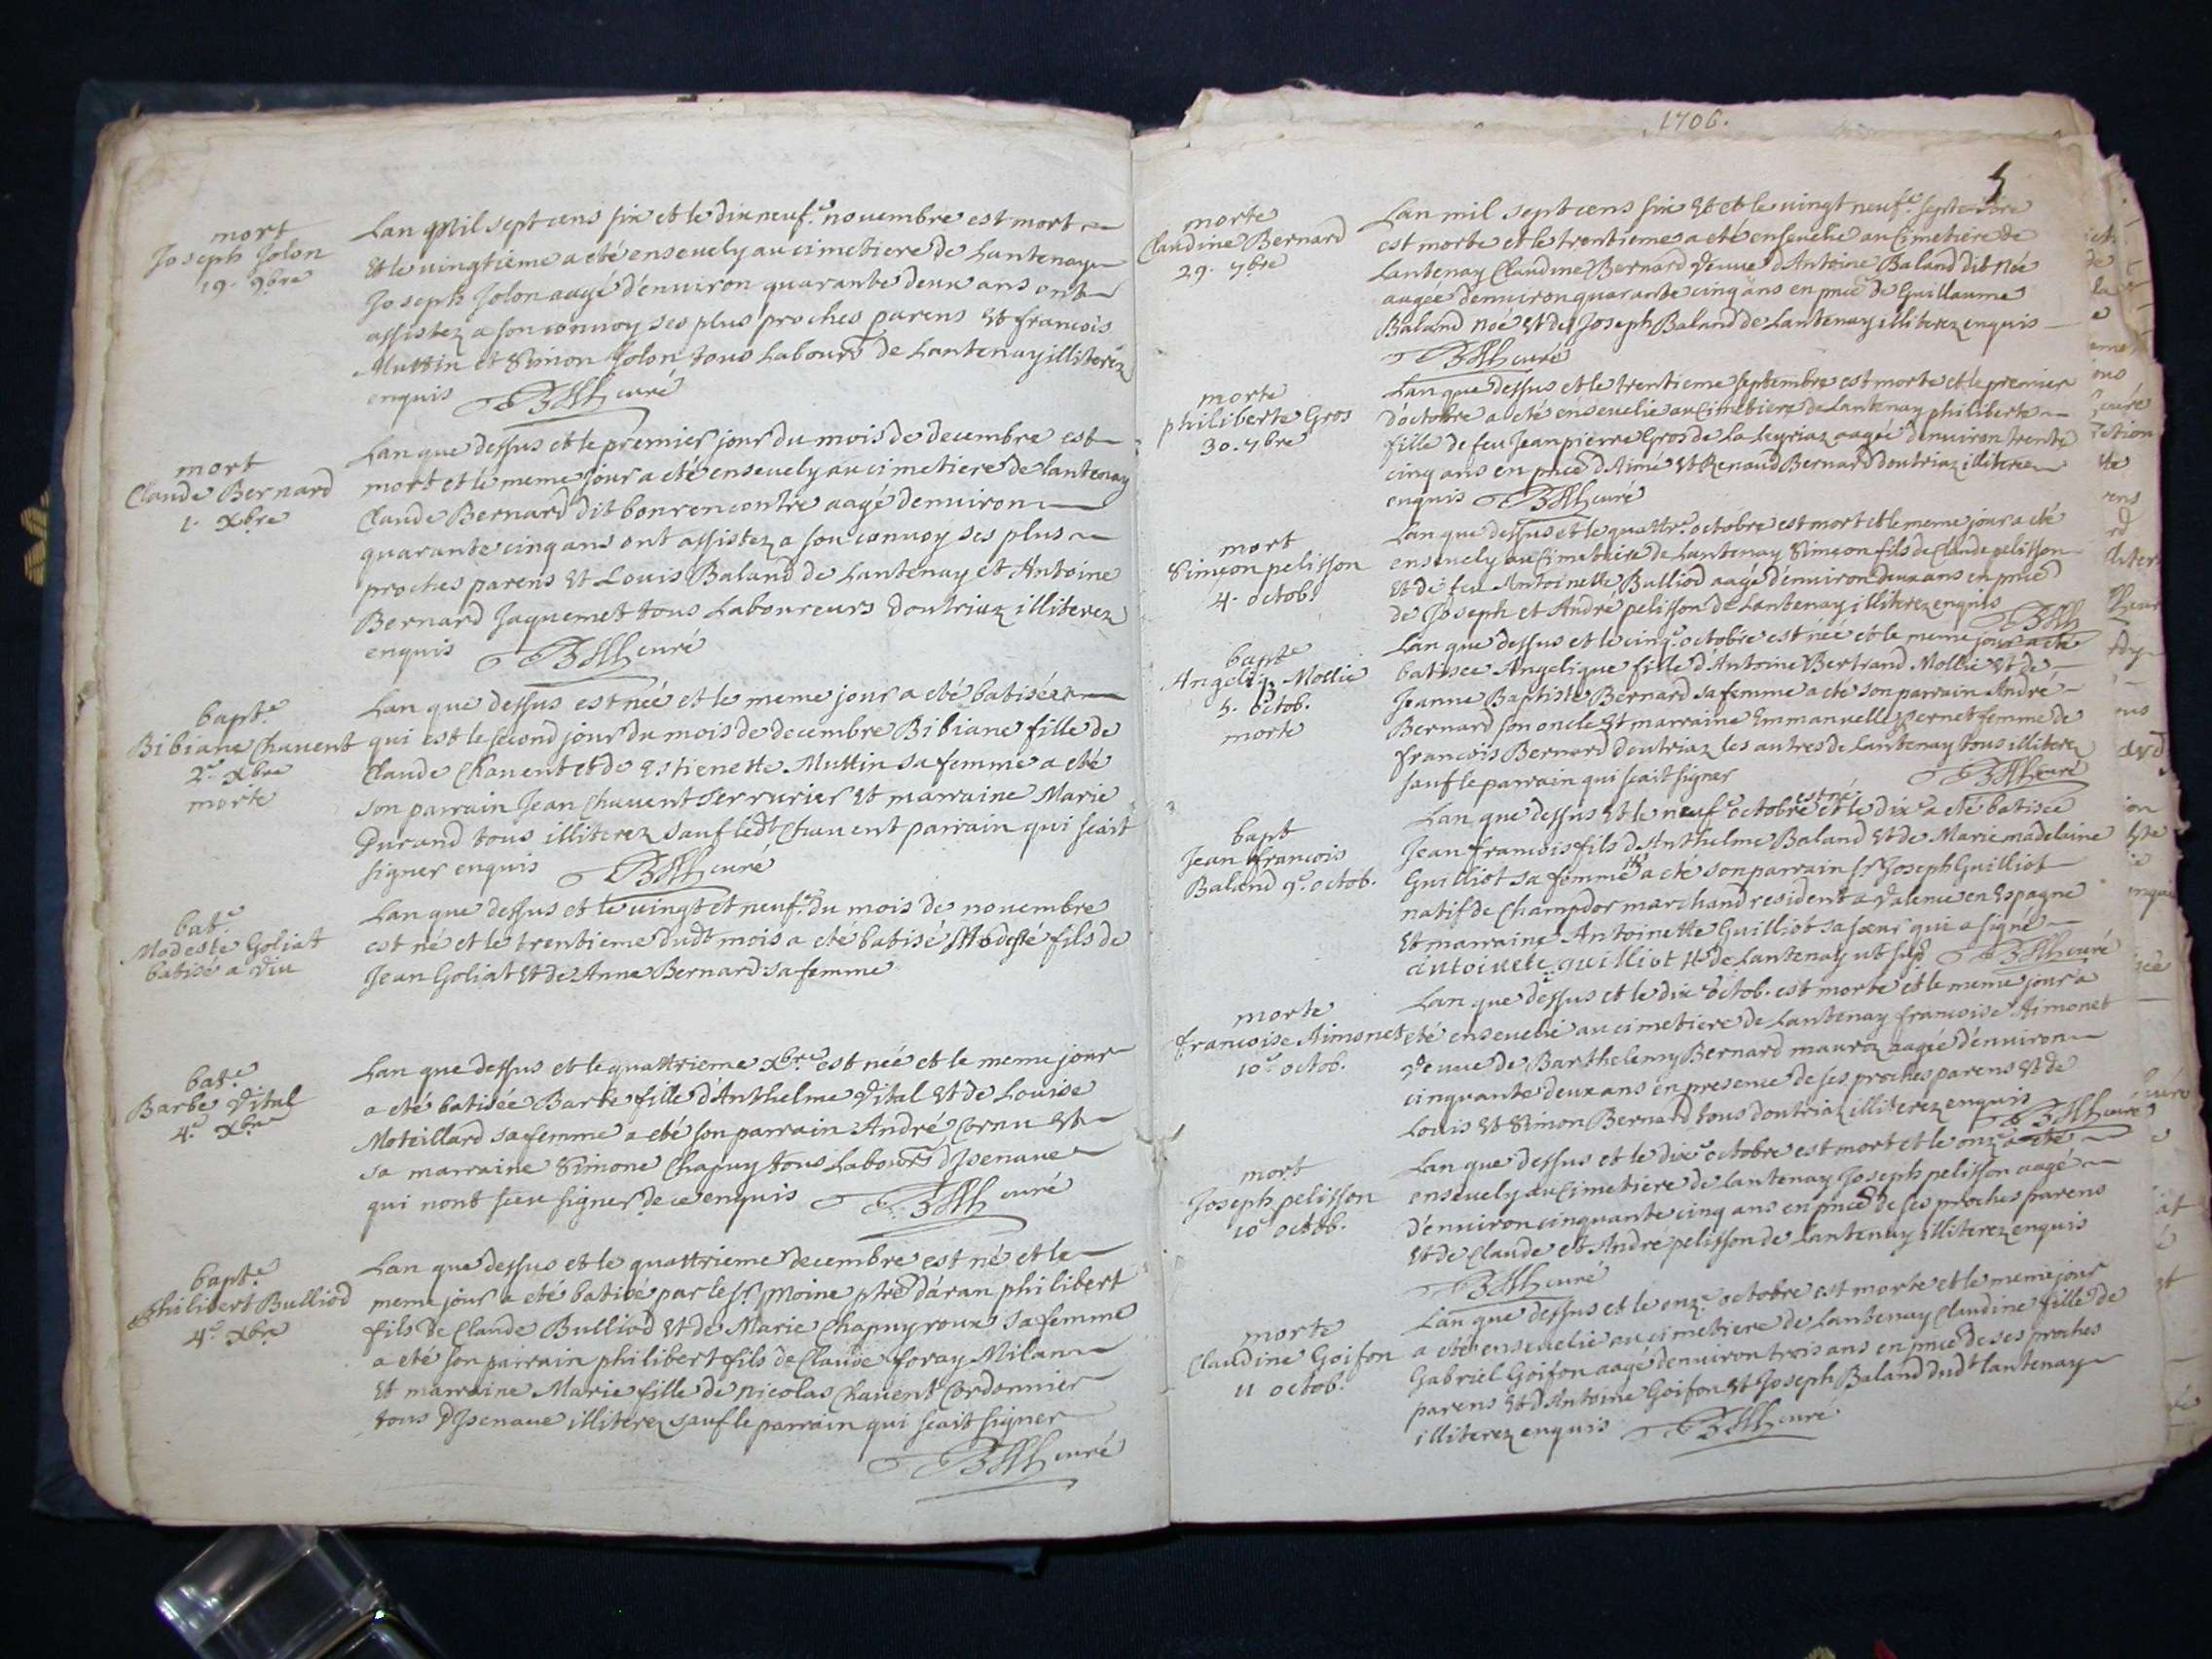 mort
Joseph Jolon
19. 9bre
Lan Mil sept cens six et le dix neuf.e novembre est mort
Et le vingtieme a eté ensevely au cimetiere de Lantenay
Joseph Jolon aagé d'environ quarante deux ans ont
assistez a son convoy ses plus proches parens Et francois
Muttin et Simon Jolon tous Labours de Lantenay illiterez
enquis curé
mort
Claude Bernard
1. Xbre
Lan que dessus et le premier jour du mois de decembre est
mort et le meme jour a eté ensevely au cimetiere de lantenay
Claude Bernard dit bonrencontre aagé denviron
quarante cinq ans ont assistez a son convoy ses plus
proches parens Et Louis Baland de Lantenay et Antoine
Bernard Jaquemet tous Laboureurs doutriaz illiterez
enquis curé
bapt.e
Bibiane Chavent
2.e Xbre
morte
Lan que dessus est née et le meme jour a eté batisée
qui est le second jour du mois de decembre Bibiane fille de
Claude Chavent et de Estienette Muttin sa femme a eté
son parrain Jean Chavent Serrurier Et marraine Marie
Durand tous illiterez sauf ledt Chavent parrain qui scait
signer enquis curé
bat.e
Modeste Goliat
batisé a Viu
Lan que dessus et le vingt et neuf.e du mois de novembre
est né et le trentieme dudt mois a eté batisé Modeste fils de
Jean Goliat Et de Anne Bernard sa femme
bat.e
Barbe Vital
4.e Xbre
Lan que dessus et le quattrieme Xbre est née et le meme jour
a eté batisée Barbe fille d'Anthelme Vital Et de Louise
Moteillard sa femme a eté son parrain André Cornu Et
sa marraine Simone Chapuy tous Labours d'Jsenave
qui nont sceu signer de ce enquis curé
bapt.e
Philibert Bulliod
4.e Xbre
Lan que dessus et le quattrieme decembre est né et le
meme jour a eté batisé par le Sr. Moine ptre d'aran philibert
fils de Claude Bulliod Et de Marie Chapuy roux sa femme
a eté son parrain philibert fils de Claude foray Milan
Et marraine Marie fille de nicolas Chavent Cordonnier
tous d'Jsenave illiterez sauf le parrain qui scait signer
curé
1706.
5
morte
Claudine Bernard
29. 7bre
Lan mil sept cens six Et et le vingt neuf.e septembre
est morte et le trentieme a eté ensevelie au Cimetiere de
Lantenay Claudine Bernard Veuve d'Antoine Baland dit Noé
aagée denviron quarante cinq ans en pnce de Guillaume
Baland Noé Et de Joseph Baland de Lantenay illiterez enquis
curé
morte
philiberte Gros
30. 7bre
Lan que dessus et le trentieme septembre est morte et le premier
d'octobre a eté ensevelie au Cimetiere de Lantenay philiberte
fille de feu Jean pierre Gros de La Leyriaz aagée d'environ trente
cinq ans en pnce d'Aimé Et Renaud Bernard doutriaz illiterez
enquis curé
mort
Simeon pelisson
4. octob.
Lan que dessus et le quattr.e octobre est mort et le meme jour a eté
ensevely au Cimetiere de Lantenay Simeon fils de Claude pelisson
Et de feu Antoinette Bulliod aagé d'environ deux ans en pnce
de Joseph et André pelisson de Lantenay illiterez enquis
bapt.e
Angeliq. Mollie
5. octob.
morte
Lan que dessus et le cinq.e octobre est née et le meme jour a eté
batisee Angelique fille d'Antoine Bertrand Mollie Et de
Jeanne Baptiste Bernard sa femme a eté son parrain André
Bernard son oncle Et marraine Emmanuelle Pernet femme de
francois Bernard doutriaz les autres de Lantenay tous illiterez
sauf le parrain qui scait signer curé
bapt
Jean francois
Baland 9.e octob.
Lan que dessus Et le neuf.e octobre est né et le dix.e a eté batisée
Jean francois fils d'Anthelme Baland Et de Marie madelaine
Guilliot sa femme a eté son parrain Sr Joseph Guilliot
natif de Champdor marchand resident a Valence en Espagne
Et marraine Antoinette Guilliot sa soeur qui a signé
antoinete guilliot de Lantenay ut sup. curé
morte
francoise Aimonet
10.e octob.
Lan que dessus et le dix octob. est morte et le meme jour a
eté ensevelie au cimetiere de Lantenay francoise Aimonet
Veuve de Barthelemy Bernard mauroz aagée d'environ
cinquante deux ans en presence de ses proches parens Et de
Louis Et Simon Bernard tous doutriaz illiterez enquis curé
mort
Joseph pelisson
10 octob.
Lan que dessus et le dix.e octobre est mort et le onz.e a eté
ensevely au Cimetiere de Lantenay Joseph pelisson aagé
d'environ cinquante cinq ans en pnce de ses proches parens
Et de Claude et André pelisson de Lantenay illiterez enquis
curé
morte
Claudine Goifon
11 octob.
Lan que dessus et le onz.e octobre est morte et le meme jour
a eté ensevelie au cimetiere de Lantenay Claudine fille de
Gabriel Goifon aagé denviron trois ans en pnce de ses proches
parens Et d'Antoine Goifon Et Joseph Baland dudt lantenay
illiterez enquis curé